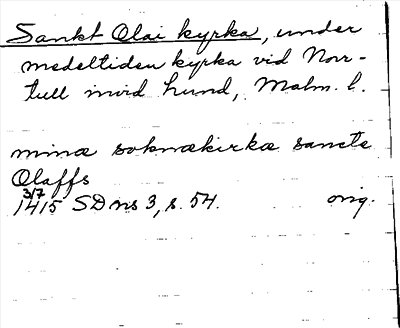 Sankt Olai kyrka, under
medeltiden kyrka vid Norr-
tull invid Lund, Malm. l.
minæ soknækirkæ sancte
Olaffs
3/7
1415 SD ns 3, s. 54. orig.